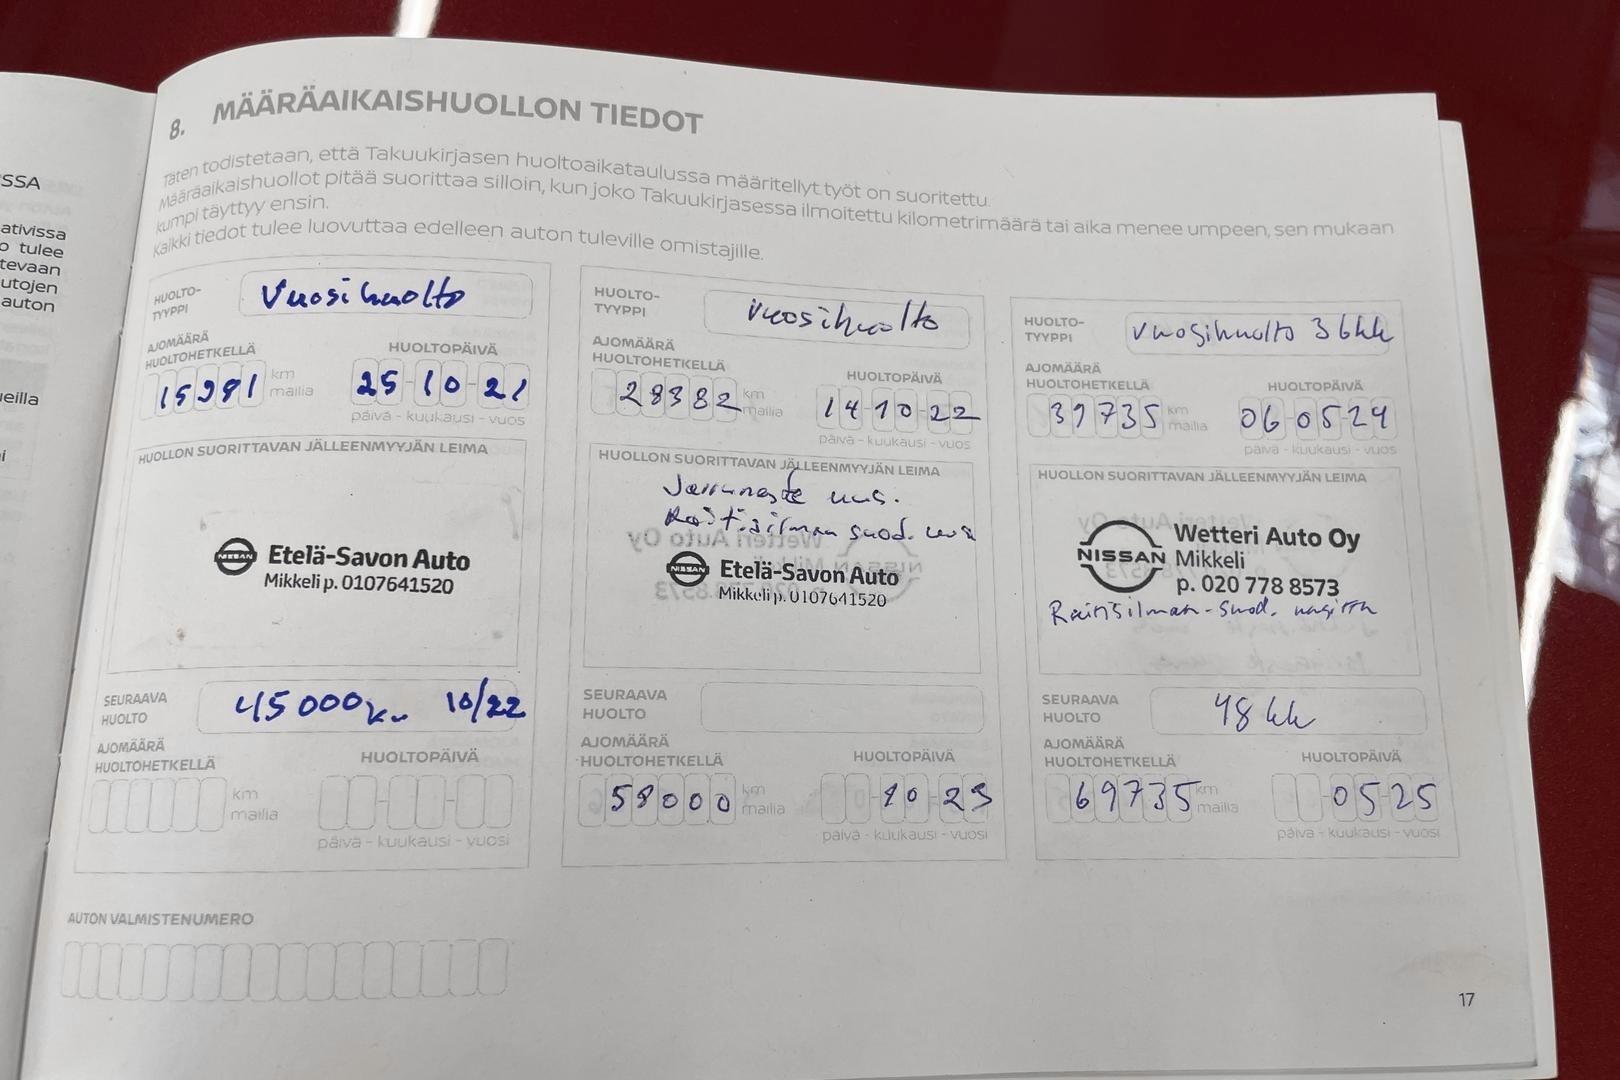 SSA
ativissa
o tulee
tevaan
utojen
auton
ueilla
i
8. MÄÄRÄAIKAISHUOLLON TIEDOT
Täten todistetaan, että Takuukirjasen huoltoaikataulussa määritellyt työt on suoritettu.
Määräaikaishuollot pitää suorittaa silloin, kun joko Takuukirjasessa ilmoitettu kilometrimäärä tai aika menee umpeen, sen mukaan
kumpi täyttyy ensin.
Kaikki tiedot tulee luovuttaa edelleen auton tuleville omistajille.
HUOLTO-
TYYPPI
Vuosihuolto
AJOMÄÄRÄ
HUOLTOHETKELLÄ
HUOLTOPÄIVÄ
15981 km
mailia
25-10-21
päivä - kuukausi - vuosi
HUOLLON SUORITTAVAN JÄLLEENMYYJÄN LEIMA
NISSAN Etelä-Savon Auto
Mikkeli p. 0107641520
SEURAAVA
HUOLTO
45000km 10/22
AJOMÄÄRÄ
HUOLTOHETKELLÄ
HUOLTOPÄIVÄ
km
mailia
päivä - kuukausi - vuosi
HUOLTO-
TYYPPI
Vuosihuolto
AJOMÄÄRÄ
HUOLTOHETKELLÄ
HUOLTOPÄIVÄ
28382 km
mailia
14-10-22
päivä - kuukausi - vuosi
HUOLLON SUORITTAVAN JÄLLEENMYYJÄN LEIMA
Jarruneste uus.
Raitisilman suod. uusi
NISSAN Etelä-Savon Auto
Mikkeli p. 0107641520
SEURAAVA
HUOLTO
AJOMÄÄRÄ
HUOLTOHETKELLÄ
HUOLTOPÄIVÄ
58000 km
mailia
10-23
päivä - kuukausi - vuosi
HUOLTO-
TYYPPI
Vuosihuolto 36kk
AJOMÄÄRÄ
HUOLTOHETKELLÄ
HUOLTOPÄIVÄ
39735 km
mailia
06-05-24
päivä - kuukausi - vuosi
HUOLLON SUORITTAVAN JÄLLEENMYYJÄN LEIMA
NISSAN
Wetteri Auto Oy
Mikkeli
p. 020 778 8573
Raitisilman-suod.
SEURAAVA
HUOLTO
48 kk
AJOMÄÄRÄ
HUOLTOHETKELLÄ
HUOLTOPÄIVÄ
69735 km
mailia
-05-25
päivä - kuukausi - vuosi
AUTON VALMISTENUMERO
17